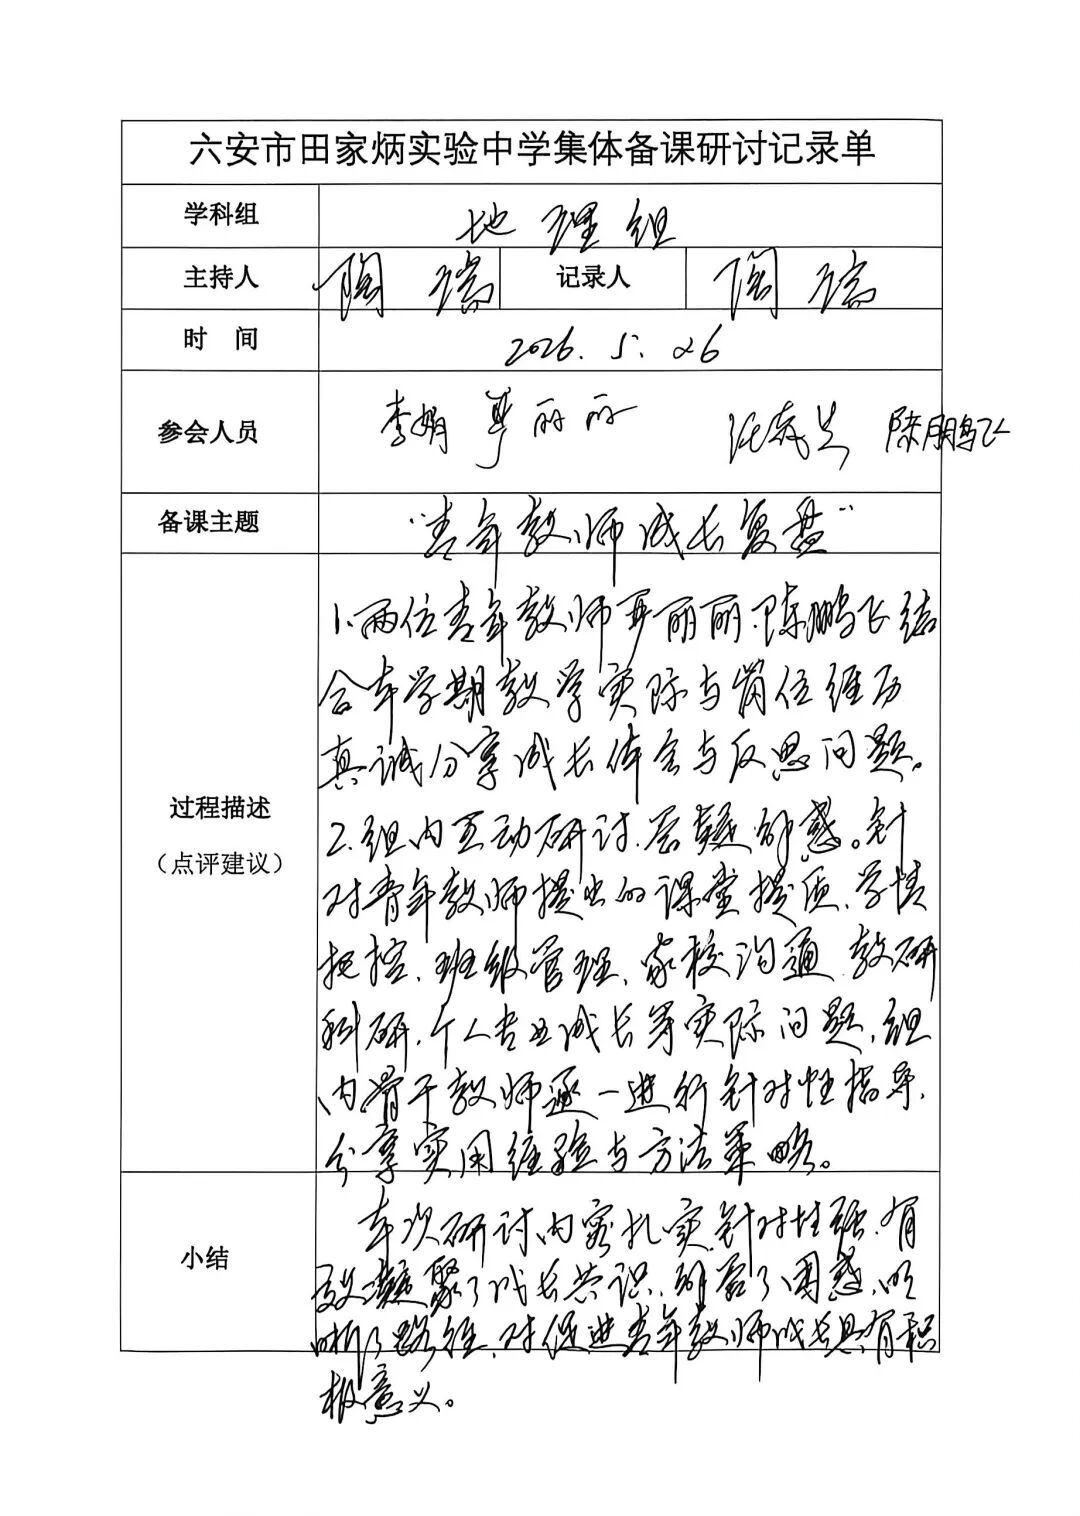 六安市田家炳实验中学集体备课研讨记录单
学科组 地理组
主持人 陶瑞 记录人 陶瑞
时 间 2026.5.26
参会人员 李娟 丽丽 陈鹏飞
备课主题 “青年教师成长复盘”
过程描述
（点评建议）
1.两位青年教师 丽丽、陈鹏飞结
合本学期教学实际与岗位经历
真诚分享成长体会与反思问题。
2.组内互动研讨、答疑解惑。针
对青年教师提出的课堂提质、学情
把控、班级管理、家校沟通、教研
科研、个人专业成长等实际问题，组
内骨干教师逐一进行针对性指导，
分享实用经验与方法策略。
小结
本次研讨内容扎实，针对性强，有
效凝聚了成长共识，解答了困惑，明
晰了路径，对促进青年教师成长具有积
极意义。